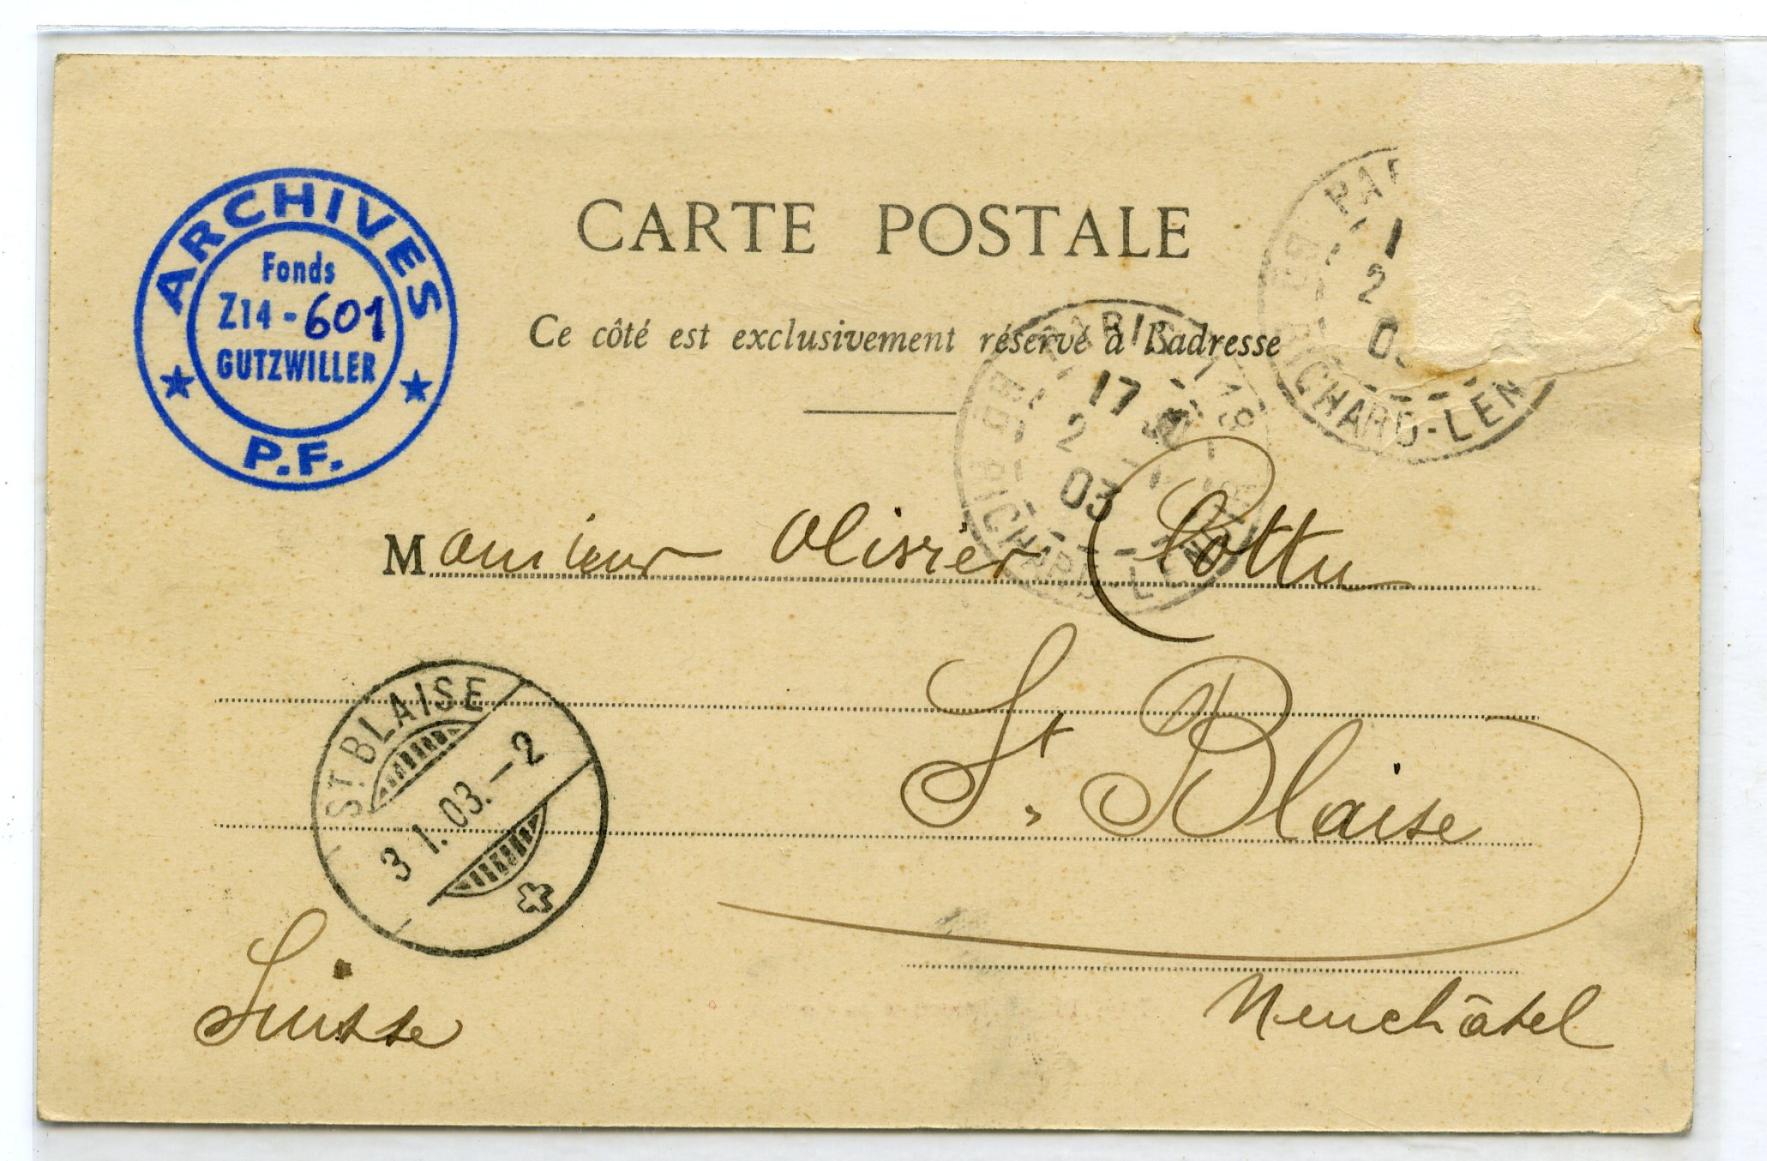 ARCHIVES
Fonds
Z14-601
GUTZWILLER
P.F.
CARTE POSTALE
Ce côté est exclusivement réservé à l'adresse
PAR
1
2
RICHARD-LEN
PARIS
17
2
03
RICHARD-LEN
Monsieur Olivier Clottu
St. Blaise
Neuchâtel
Suisse
ST. BLAISE
3 1.03.-2